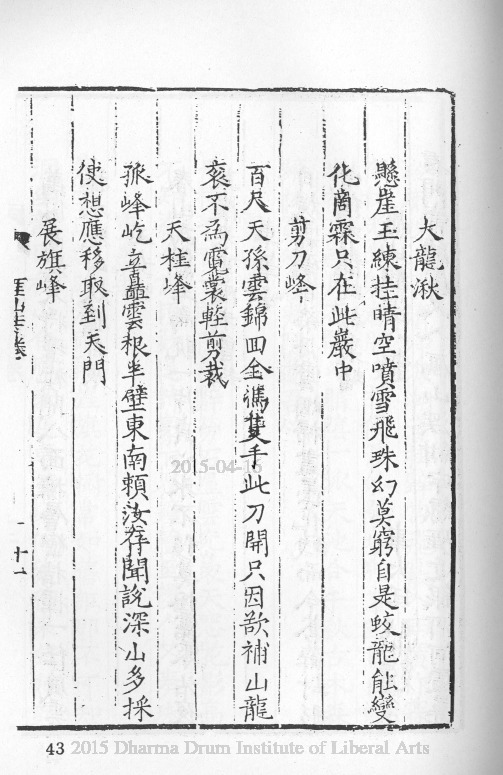 大龍湫
懸崖玉練挂晴空噴雪飛珠幻莫窮自是蛟龍能變
化商霖只在此巖中
剪刀峰
百尺天孫雲錦回全憑隻手此刀開只因欲補山龍
袞不為霓裳輕剪裁
天柱峰
孤峰屹立矗雲根半壁東南賴汝存聞說深山多採
使想應移取到天門
展旗峰
十一
2015-04-16
43 2015 Dharma Drum Institute of Liberal Arts